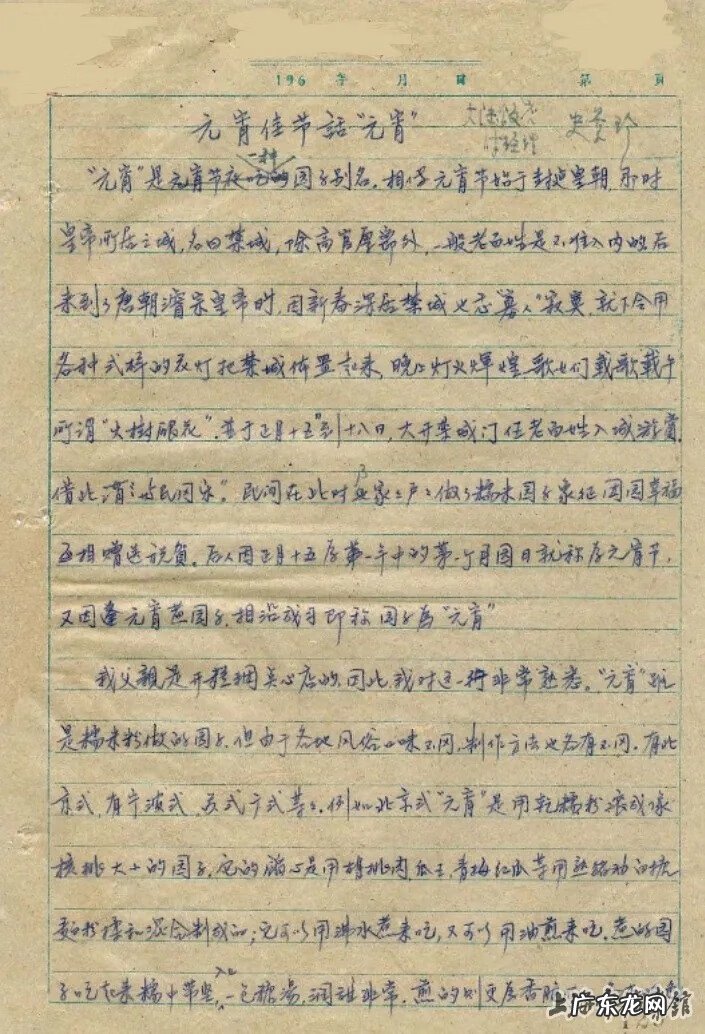 196 年 月 日 第 页
元宵佳节話"元宵"
史曼玲
一种
"元宵"是元宵节夜吃的团子别名。相傳元宵节始于封建皇朝,那时
皇帝所居之城,名曰禁城,除高官厚爵外,一般老百姓是不准入内的后
来到了唐朝濬宗皇帝时,因新春深居禁城也忒"寡人"寂寞,就下令用
各种式样的花灯把禁城佈置起来,晚上灯火輝煌,歌女们載歌載午
所谓"火樹银花"。並于正月十五到十八日,大开禁城门任老百姓入城游賞,
借此谓之与民同乐"。民间在此时家家户户做了糯米团子象征团圆幸福
互相赠送祝贺。后人因正月十五居第一年中的第一个月圆日就称为元宵节,
又因逢元宵煮团子,相沿成习即称团子為"元宵"
我父親是开糕糰点心店的,因此,我对这一行非常熟悉。"元宵"虽
是糯米粉做的团子,但由于各地风俗口味不同,制作方法也各有不同,有北
京式,有宁波式,苏式广式等等。例如北京式"元宵"是用乾糯粉滚成像
核桃大小的团子,它的馅心是用胡桃肉,瓜子,青梅红瓜等用熟猪油白糖
麵粉揉和混合制成的;它可以用沸水煮来吃,又可以用油煎来吃。煮的团
子吃起来糯中带坚,一包糖湯,润甜非常,煎的则更是香脆
上海 館
广东龙网